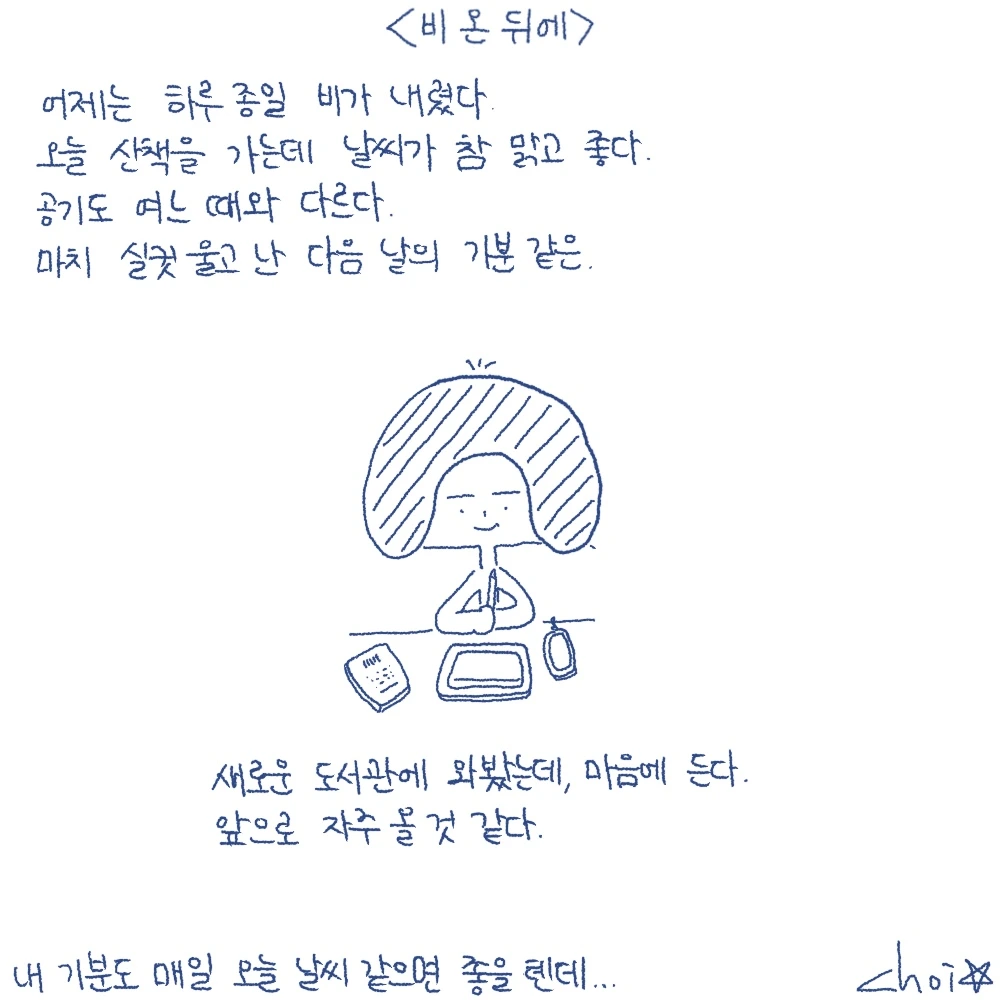 <비 온 뒤에>
어제는 하루 종일 비가 내렸다.
오늘 산책을 가는데 날씨가 참 맑고 좋다.
공기도 여느 때와 다르다.
마치 실컷 울고 난 다음 날의 기분 같은.
새로운 도서관에 와봤는데, 마음에 든다.
앞으로 자주 올 것 같다.
내 기분도 매일 오늘 날씨 같으면 좋을 텐데...
choi☆